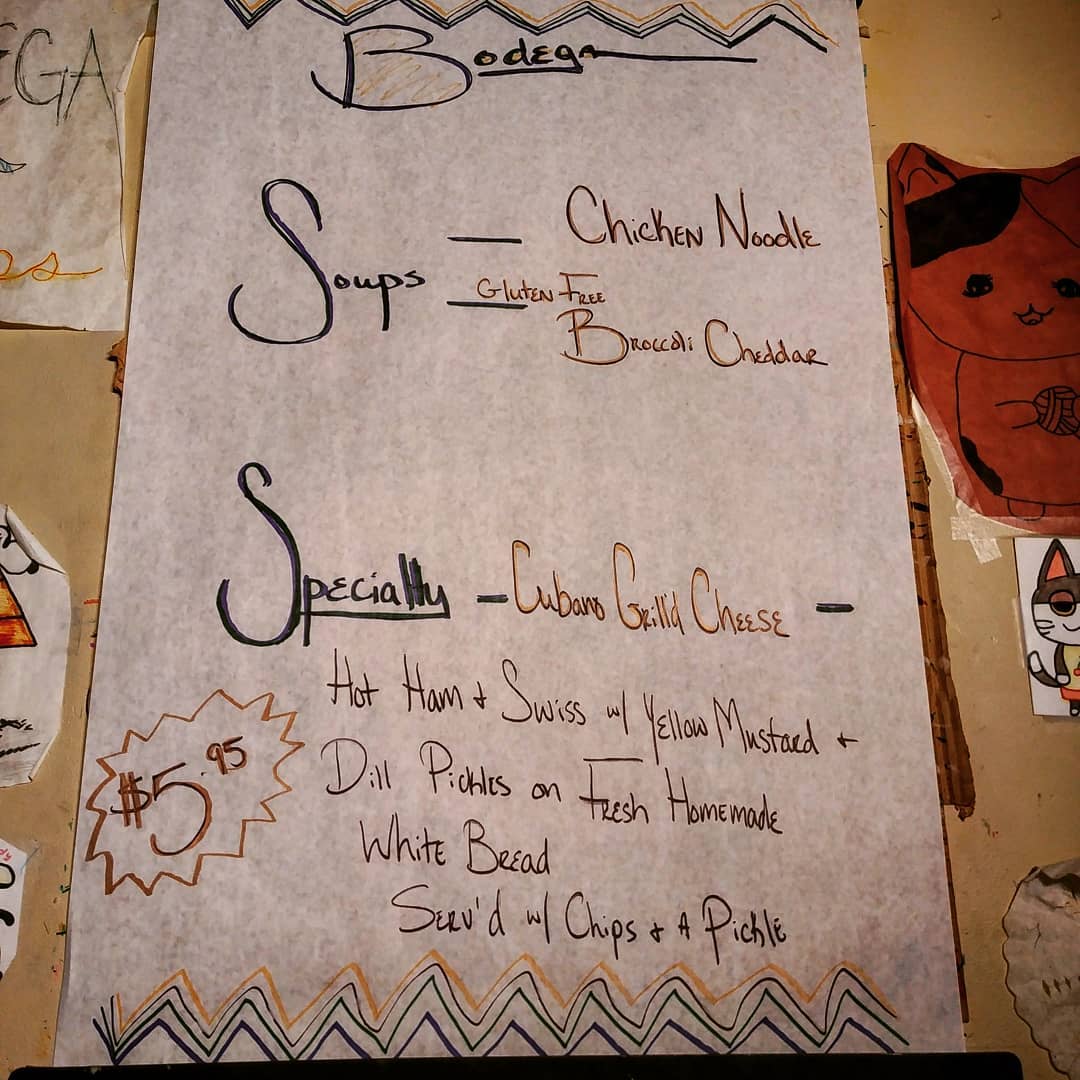 Bodega
EGA
Soups — Chicken Noodle
— Gluten Free
Broccoli Cheddar
Specialty - Cubano Grill'd Cheese -
Hot Ham + Swiss w/ Yellow Mustard +
Dill Pickles on Fresh Homemade
White Bread
Serv'd w/ Chips + A Pickle
$5.95